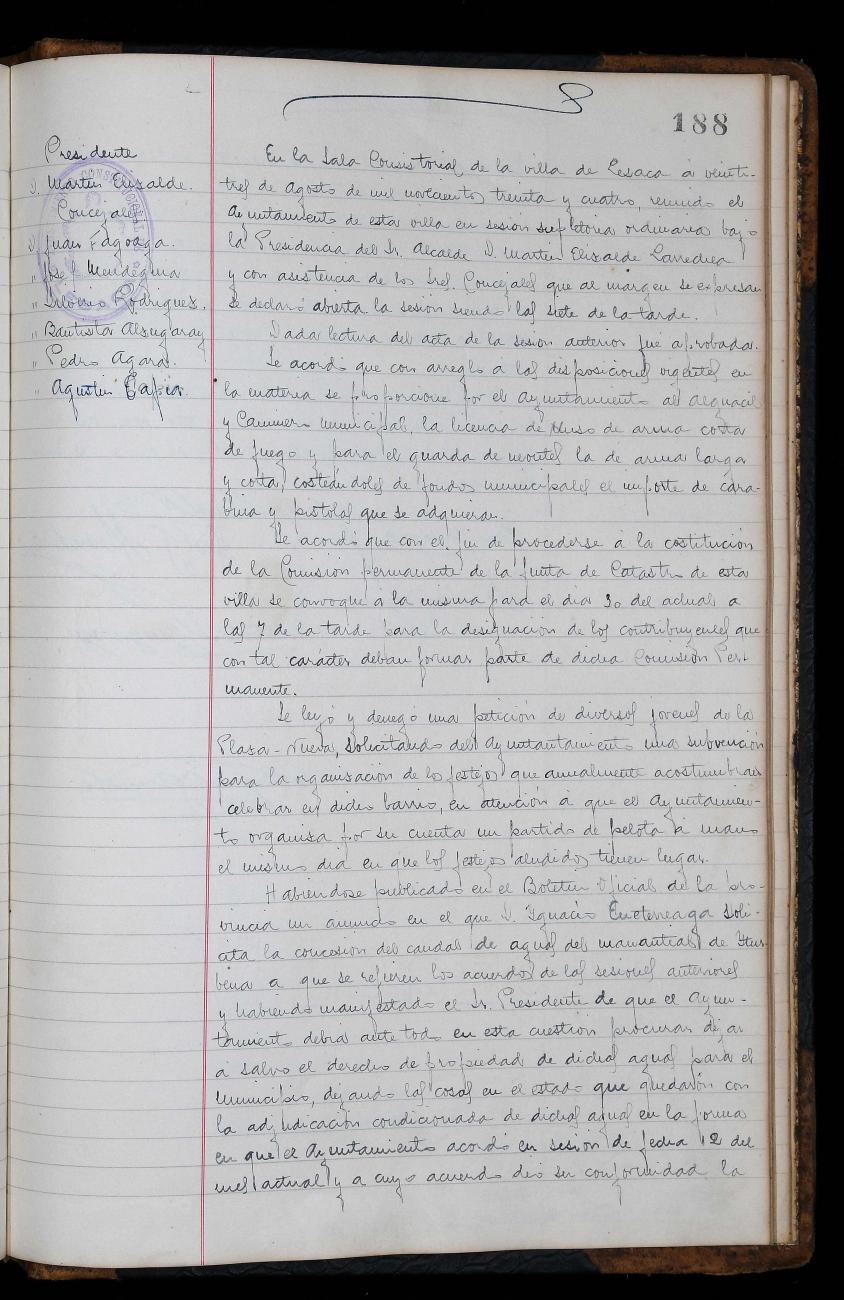 188
Presidente
D. Martin Elizalde.
Concejales
D. Juan Fagoaga.
„ José Mendeguia
„ Silverio Rodriguez.
„ Bautista Alzugaray
„ Pedro Agara.
„ Agustin Tapia.
En la Sala Consistorial de la villa de Lesaca á veinti-
tres de agosto de mil novecientos treinta y cuatro, reunido el
Ayuntamiento de esta villa en sesión supletoria ordinaria bajo
la Presidencia del Sr. Alcalde D. Martin Elizalde Larrechea
y con asistencia de los Sres. Concejales que al margen se expresan
se declaró abierta la sesión siendo las siete de la tarde.
Dada lectura del acta de la sesión anterior fué aprobada.
Se acordó que con arreglo a las disposiciones vigentes en
la materia se proporcione por el Ayuntamiento al Alguacil
y Caminero municipal, la licencia de uso de arma corta
de fuego y para el guarda de montes la de arma larga
y corta, costeándoles de fondos municipales el importe de cara-
bina y pistolas que se adquieran.
Se acordó que con el fin de procederse á la costitución
de la Comisión permanente de la Junta de Catastro de esta
villa se convoque á la misma para el dia 30 del actual a
las 7 de la tarde para la designación de los contribuyentes que
con tal carácter deban formar parte de dicha Comisión Per-
manente.
Se leyó y denegó una petición de diversos jovenes de la
Plasa-Nueva, solicitando del Ayuntantamiento una subvención
para la organisación de los festejos que anualmente acostumbran
celebrar en dicho barrio, en atención á que el Ayuntamien-
to organisa por su cuenta un partido de pelota á mano
el mismo dia en que los festejos aludidos tienen lugar.
Habiendose publicado en el Boletin Oficial de la pro-
vincia un anuncio en el que D. Ignacio Eneterreaga soli-
cita la concesión del caudal de aguas del manantial de Itur-
bena a que se refieren los acuerdos de las sesiones anteriores
y habiendo manifestado el Sr. Presidente de que el Ayun-
tamiento debia ante todo en esta cuestión procurar dejar
á salvo el derecho de propiedad de dichas aguas para el
Municipio, dejando las cosas en el estado que quedarón con
la adjudicación condicionada de dichas aguas en la forma
en que el Ayuntamiento acordó en sesión de fecha 12 del
mes actual y a cuyo acuerdo dió su conformidad la